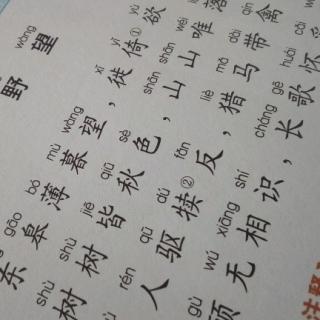 wàng
野望
gāo bó mù wàng xǐ yǐ yù
东皋薄暮望，徙倚①欲
shù shù jiē qiū sè shān shān wéi
树树皆秋色，山山唯落
rén qū dú fǎn liè mǎ dài qín
人驱犊②反，猎马带禽
gù wú xiāng shí cháng gē huái
顾无相识，长歌怀
注释